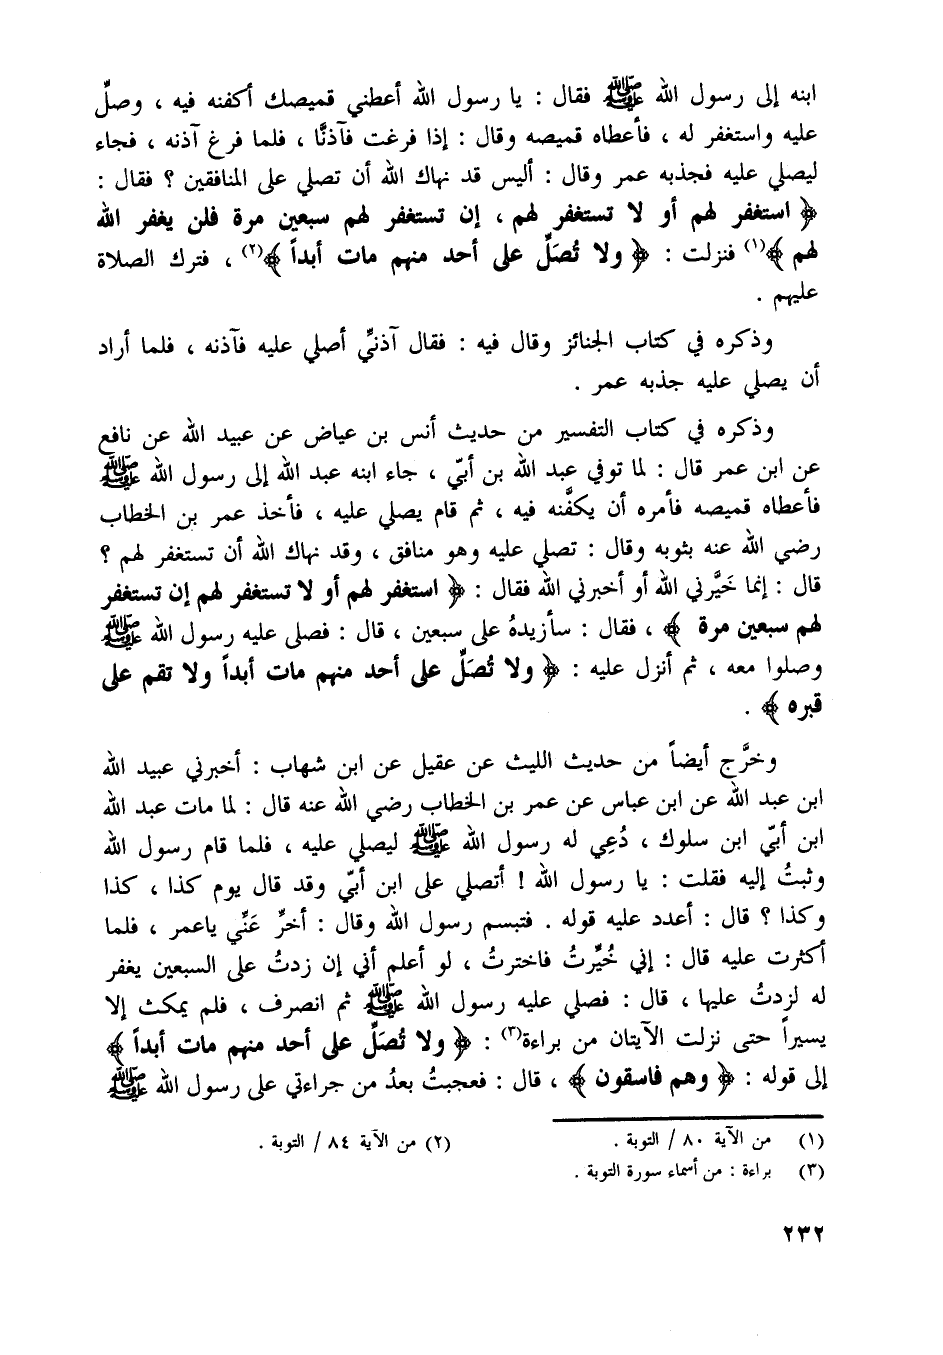 ابنه إلى رسول الله ﷺ فقال : يا رسول الله أعطني قميصك أكفنه فيه ، وصلِّ
عليه واستغفر له ، فأعطاه قميصه وقال : إذا فرغت فآذنَّا ، فلما فرغ آذنه ، فجاء
ليصلي عليه فجذبه عمر وقال : أليس قد نهاك الله أن تصلي على المنافقين ؟ فقال :
﴿ استغفر لهم أو لا تستغفر لهم ، إن تستغفر لهم سبعين مرة فلن يغفر الله
لهم ﴾(١) فنزلت : ﴿ ولا تُصَلِّ على أحد منهم مات أبداً ﴾(٢) ، فترك الصلاة
عليهم .
وذكره في كتاب الجنائز وقال فيه : فقال آذنيِّ أصلي عليه فآذنه ، فلما أراد
أن يصلي عليه جذبه عمر .
وذكره في كتاب التفسير من حديث أنس بن عياض عن عبيد الله عن نافع
عن ابن عمر قال : لما توفي عبد الله بن أبيّ ، جاء ابنه عبد الله إلى رسول الله ﷺ
فأعطاه قميصه فأمره أن يكفَّنه فيه ، ثم قام يصلي عليه ، فأخذ عمر بن الخطاب
رضي الله عنه بثوبه وقال : تصلي عليه وهو منافق ، وقد نهاك الله أن تستغفر لهم ؟
قال : إنما خَيَّرني الله أو أخبرني الله فقال : ﴿ استغفر لهم أو لا تستغفر لهم إن تستغفر
لهم سبعين مرة ﴾ ، فقال : سأزيدهُ على سبعين ، قال : فصلى عليه رسول الله ﷺ
وصلوا معه ، ثم أنزل عليه : ﴿ ولا تُصَلِّ على أحد منهم مات أبداً ولا تقم على
قبره ﴾ .
وخرَّج أيضاً من حديث الليث عن عقيل عن ابن شهاب : أخبرني عبيد الله
ابن عبد الله عن ابن عباس عن عمر بن الخطاب رضي الله عنه قال : لما مات عبد الله
ابن أبيّ ابن سلوك ، دُعِي له رسول الله ﷺ ليصلي عليه ، فلما قام رسول الله
وثبتُ إليه فقلت : يا رسول الله ! أتصلي على ابن أبيّ وقد قال يوم كذا ، كذا
وكذا ؟ قال : أعدد عليه قوله . فتبسم رسول الله وقال : أخرِّ عَنِّي ياعمر ، فلما
أكثرت عليه قال : إني خُيِّرتُ فاخترتُ ، لو أعلم أني إن زدتُ على السبعين يغفر
له لزدتُ عليها ، قال : فصلي عليه رسول الله ﷺ ثم انصرف ، فلم يمكث إلا
يسيراً حتى نزلت الآيتان من براءة(٣) : ﴿ ولا تُصَلِّ على أحد منهم مات أبداً ﴾
إلى قوله : ﴿ وهم فاسقون ﴾ ، قال : فعجبتُ بعدُ من جراءتي على رسول الله ﷺ
(١) من الآية ٨٠ / التوبة . (٢) من الآية ٨٤ / التوبة .
(٣) براءة : من أسماء سورة التوبة .
٢٣٢